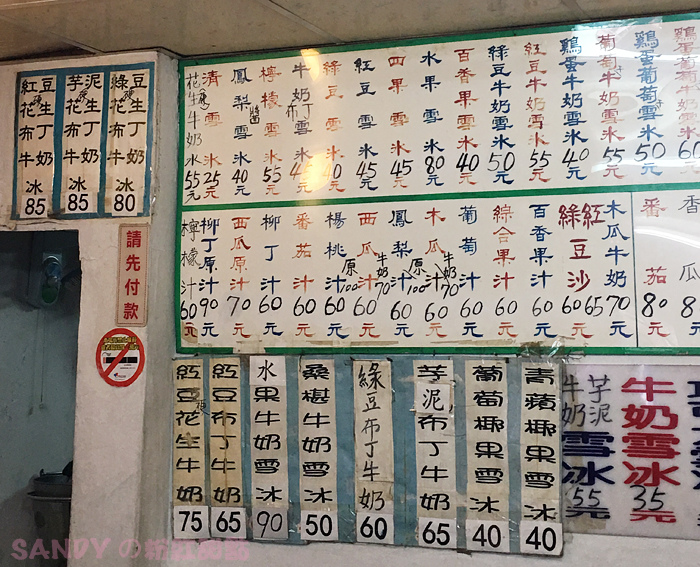 紅豆花生布丁牛奶冰 85
芋泥花生布丁牛奶冰 85
綠豆花生布丁牛奶冰 80
請先付款
花生牛奶冰 55元
清雪冰 25元
鳳梨雪冰 40元
檸檬雪冰 55元
牛奶布丁雪冰 45元
綠豆雪冰 40元
紅豆雪冰 45元
西果雪冰 45元
水果雪冰 80元
百香果雪冰 40元
綠豆牛奶雪冰 50元
紅豆牛奶雪冰 55元
鷄蛋牛奶雪冰 40元
葡萄牛奶雪冰 55元
鷄蛋葡萄雪冰 50元
檸檬汁 60元
柳丁原汁 90元
西瓜原汁 70元
柳丁汁 60元
番茄汁 60元
楊桃汁 60元
西瓜汁 60元
原100
牛奶70
鳳梨汁 60元
原100
木瓜汁 60元
牛奶70
葡萄汁 60元
綜合果汁 60元
百香果汁 60元
綠豆沙 60元
紅豆沙 65元
木瓜牛奶 70元
番茄 80元
香瓜
紅豆花生牛奶 75
紅豆布丁牛奶 65
水果牛奶雪冰 90
桑椹牛奶雪冰 50
綠豆布丁牛奶 60
芋泥布丁牛奶 65
葡萄椰果雪冰 40
青蘋椰果雪冰 40
芋泥牛奶雪冰 55元
牛奶雪冰 35元
SANDYの